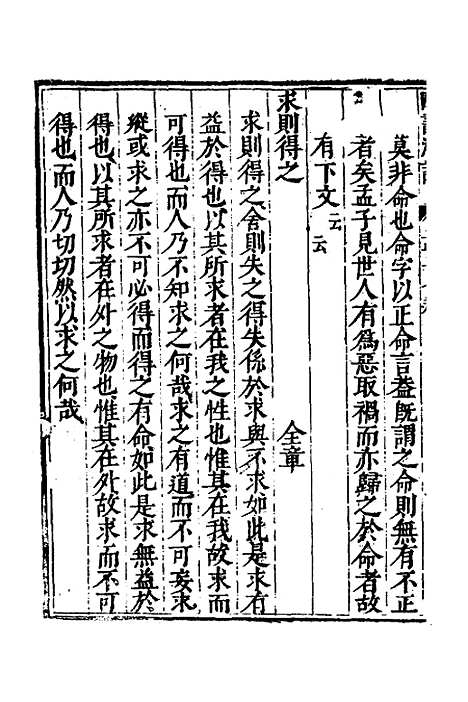 莫非命也命字以正命言葢既謂之命則無有不正
者矣孟子見世人有爲惡取禍而亦歸之於命者故
有下文云云
求則得之　全章
求則得之舍則失之得失係於求與不求如此是求有
益於得也以其所求者在我之性也惟其在我故求而
可得也而人乃不知求之何哉求之有道而不可妄求
縱或求之亦不可必得而得之有命如此是求無益於
得也以其所求者在外之物也惟其在外故求而不可
得也而人乃切切然以求之何哉